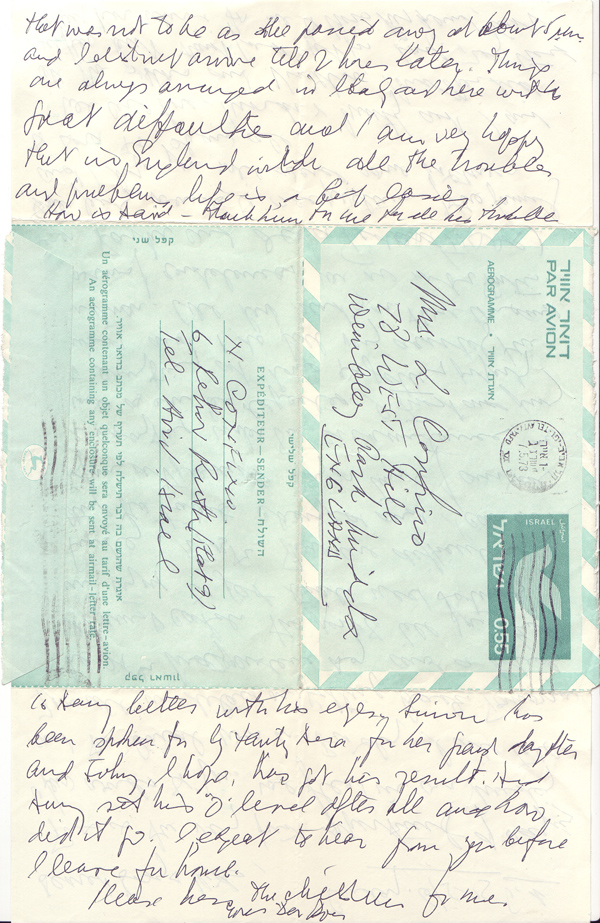 that was not to be as she passed away at about 5 p.m.
and I distinct arrive till 2 hres later. Things
are always arranged in Italy as here with
great difficulties and I am very happy
that in England with all the troubles
and problems life is a bit easier
How is David – thank him for me for all his trouble
קפל שני
Un aérogramme contenant un objet quelconque sera envoyé au tarif d'une lettre-avion.
An aerogramme containing any enclosure will be sent at airmail-letter rate.
EXPÉDITEUR—SENDER—השולח
H. Confino
Tel-Aviv, Israel
קפל שלישי
קפל ראשון
דאר אויר
PAR AVION
AEROGRAMME • אגרת אויר
Mrs. L Confino
78 WEST Hill
Wembley Park Midda
ENGLAND
ISRAEL
ישראל
0.55
is Hany better with his eyes, Simon has
been spoken for by tanty Dera for her grand daughter
and John, I hope, has got his result. Had
Hany sat his "O" level after all and how
did it go. I expect to hear from you before
I leave for home.
Please the children for me